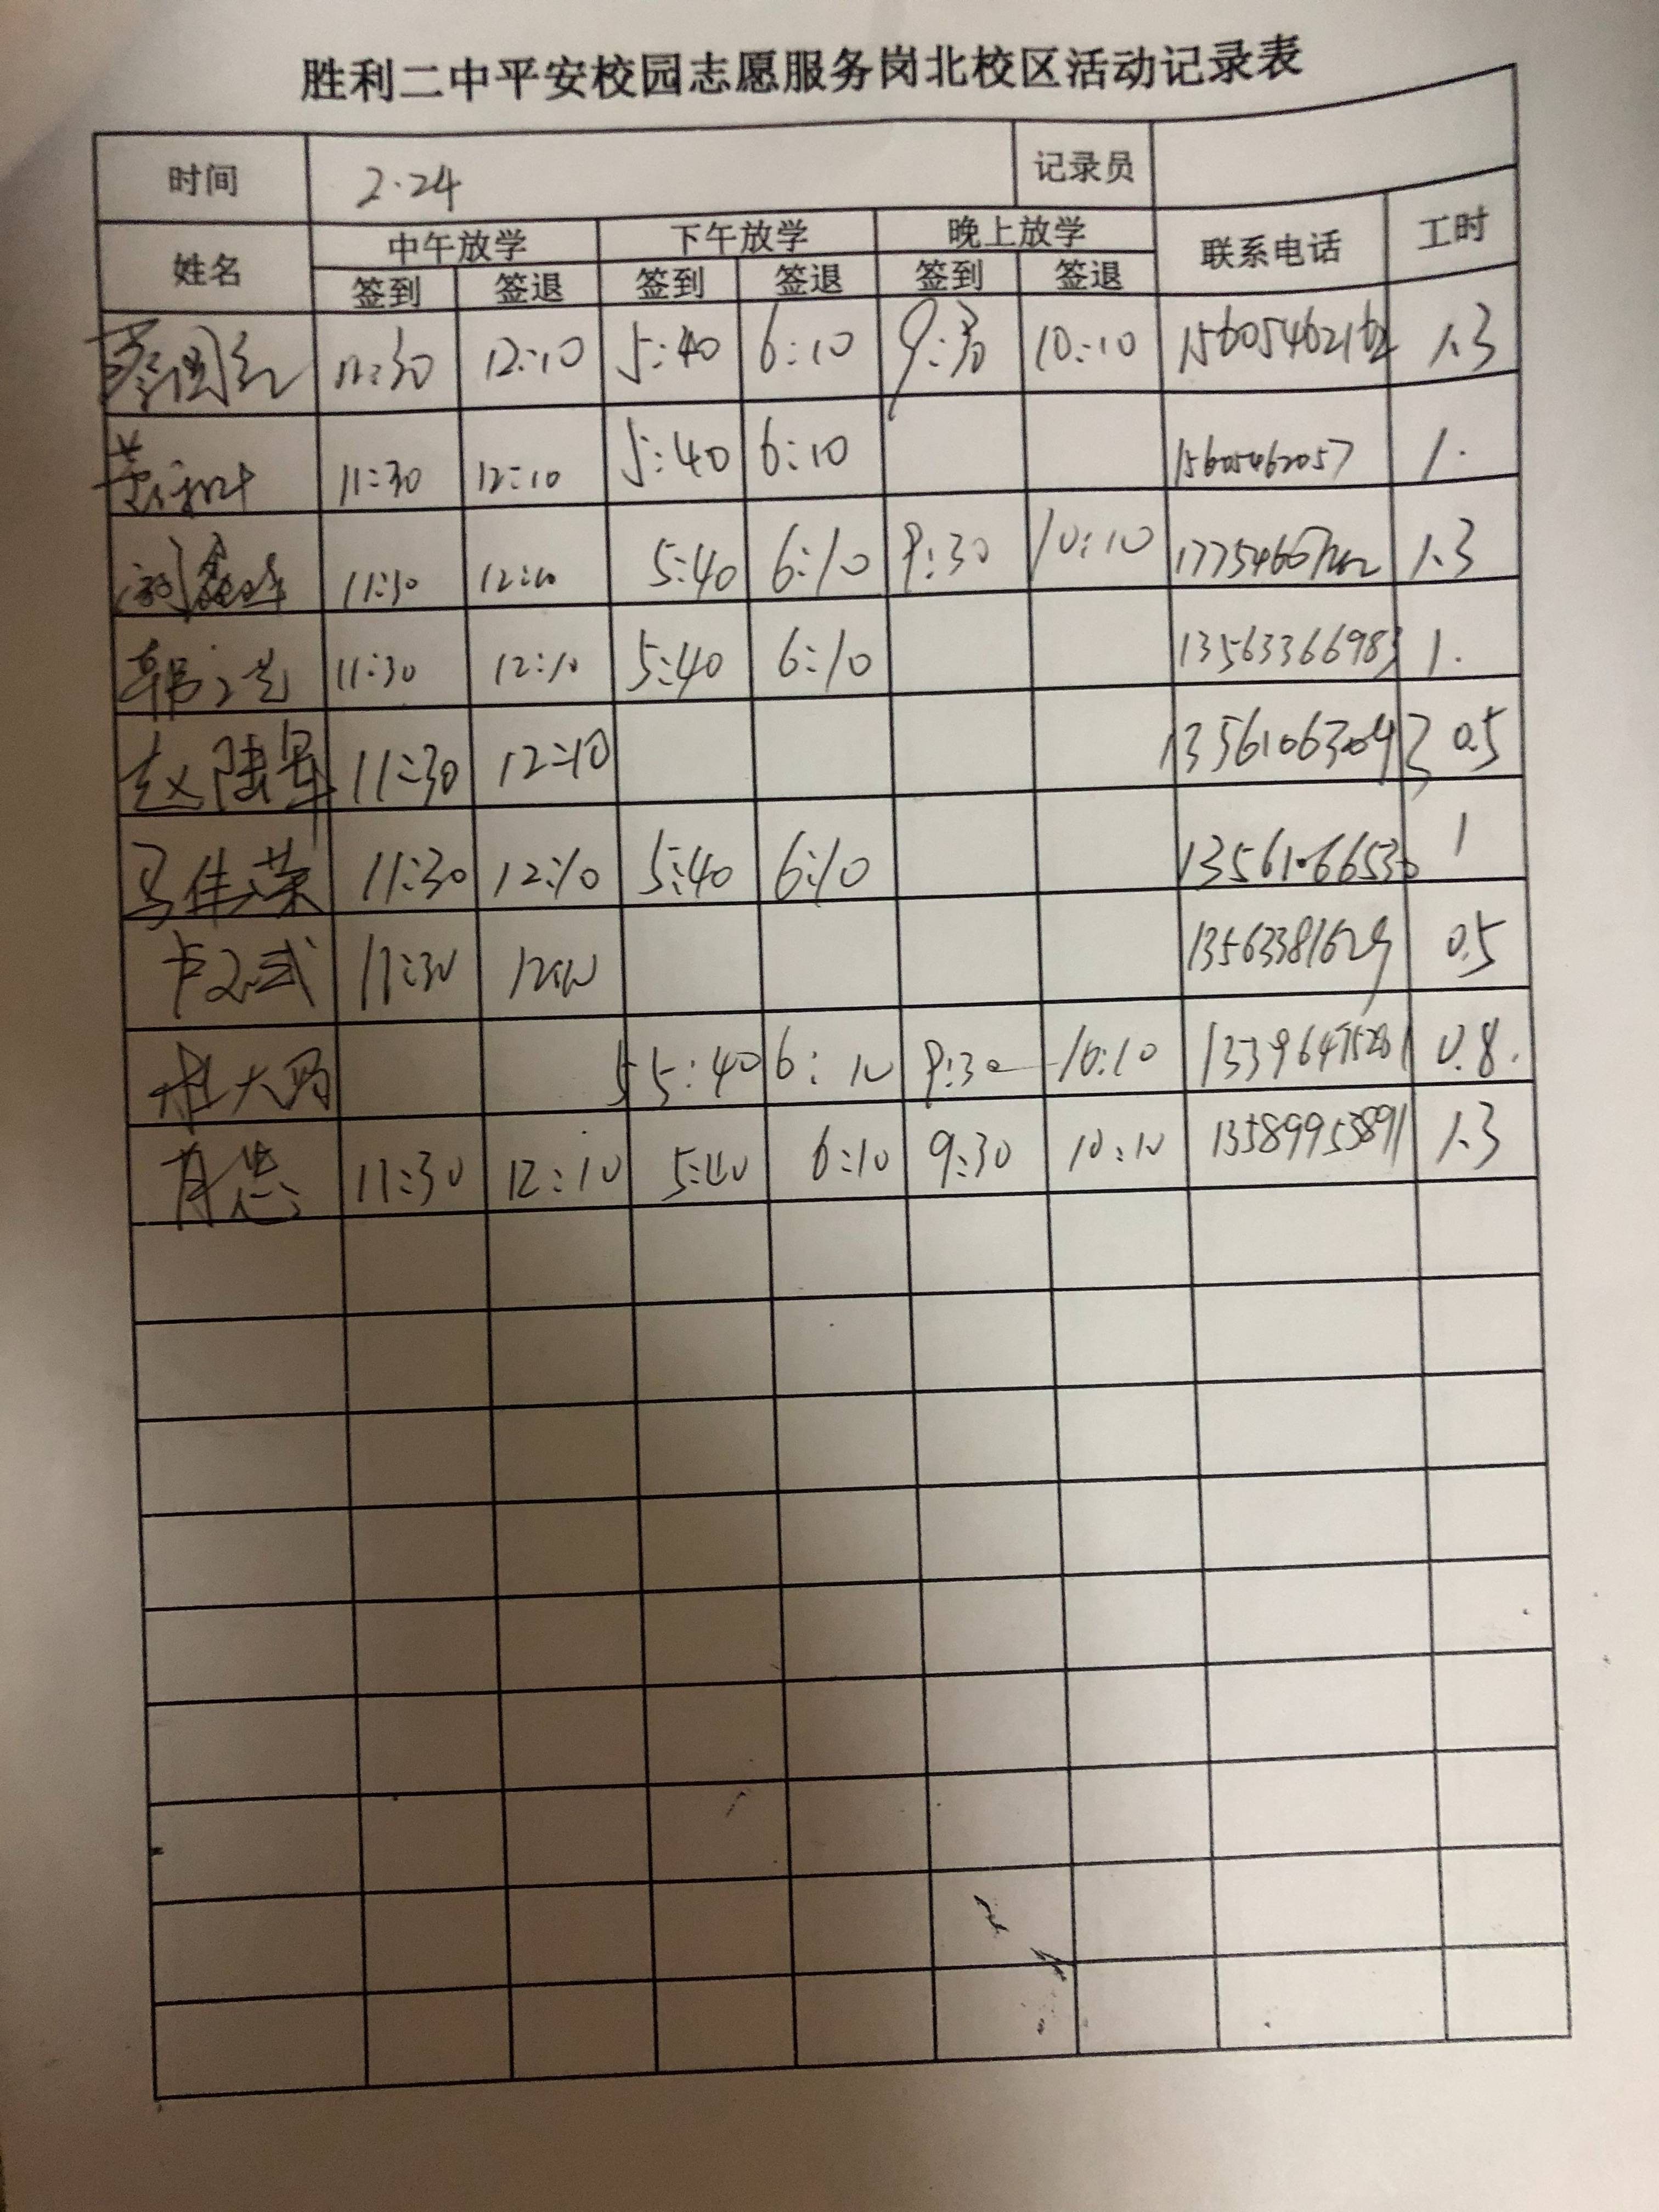 胜利二中平安校园志愿服务岗北校区活动记录表
时间 2.24 记录员
姓名 中午放学 下午放学 晚上放学 联系电话 工时
签到 签退 签到 签退 签到 签退
11:30 12:10 5:40 6:10 9:30 10:10 1.3
11:30 12:10 5:40 6:10 15605462057 1.
11:30 12:10 5:40 6:10 9:30 10:10 1.3
11:30 12:10 5:40 6:10 13563366983 1.
赵陆军 11:30 12:10 13561063043 0.5
马佳荣 11:30 12:10 5:40 6:10 13561066530 1
11:30 12:10 13563381629 0.5
5:40 6:10 9:30 10:10 13396475281 0.8.
肖总 11:30 12:10 5:40 6:10 9:30 10:10 13589953891 1.3